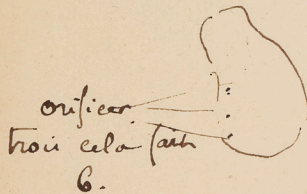 orifices
trois cela fait
6.